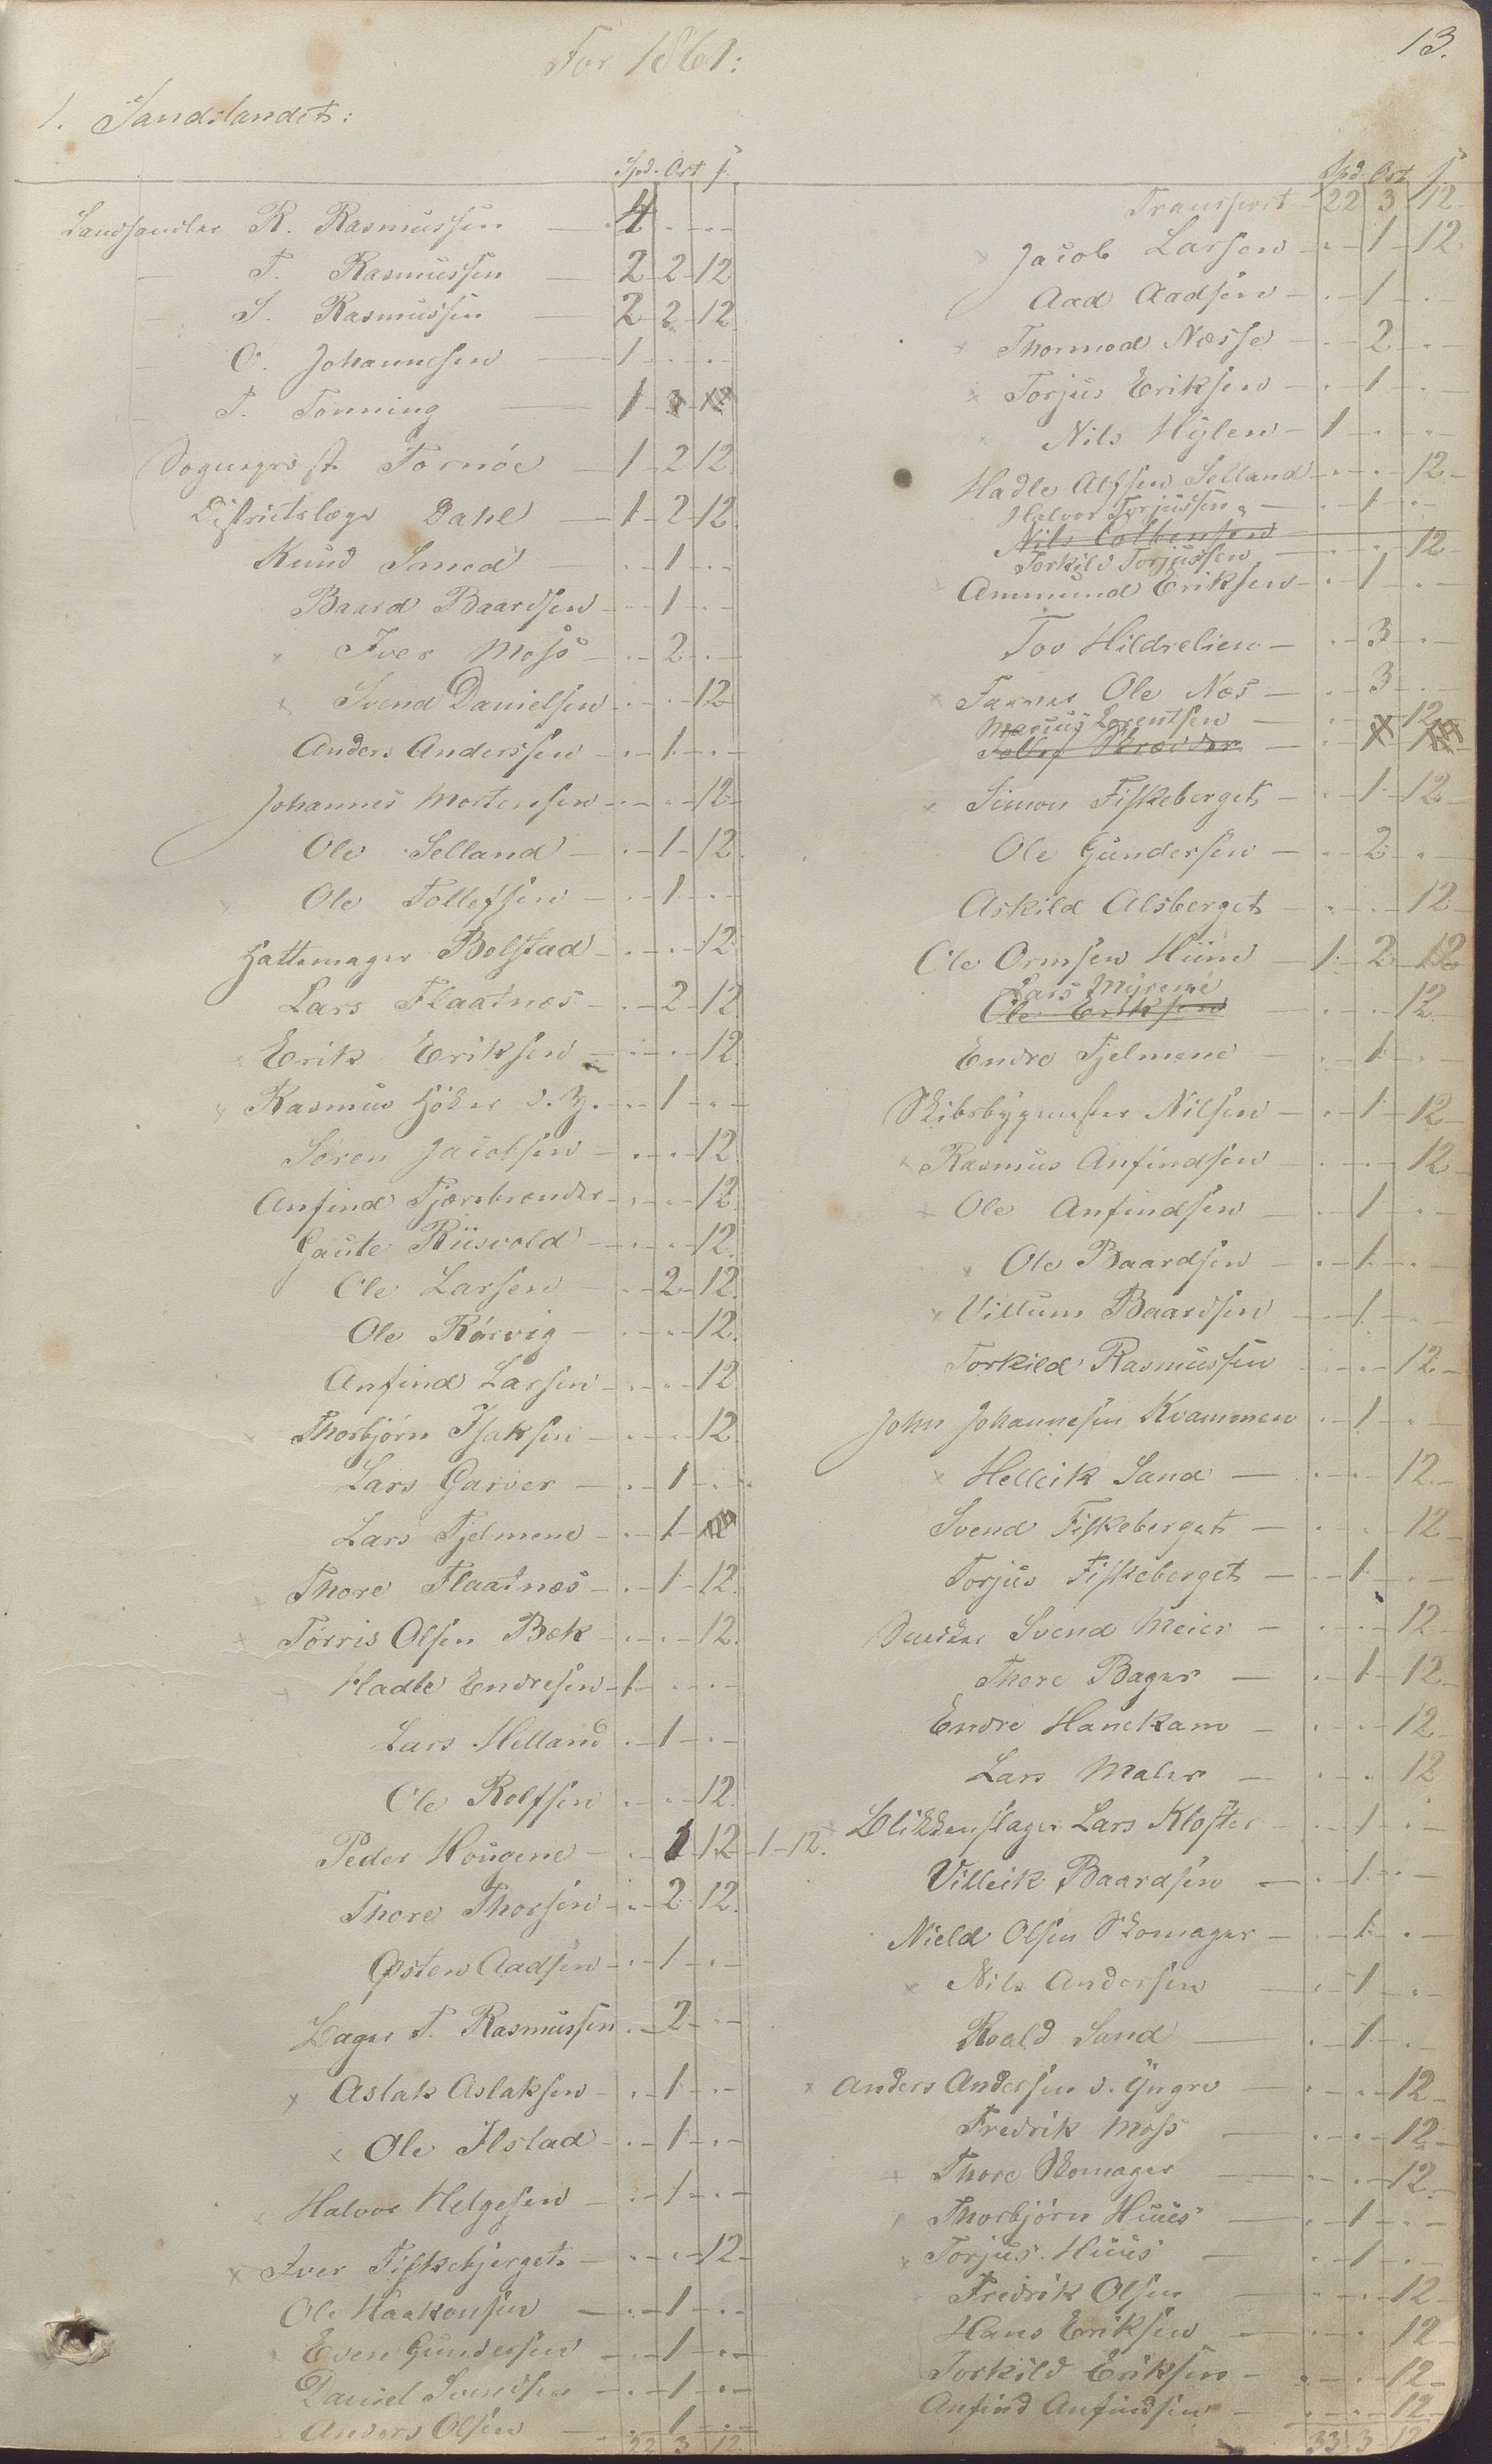 13.
For 1861:
1. Sandslandet:
Spd. Ort ß.
Landhandler R. Rasmussen 4 . ..
— T. Rasmussen 2 2 12
— S. Rasmussen 2 2 12
— O. Johannesen 1 . .
— T. Tonning 1
Sogneprst. Tornöe 1 2 12
Districtslæge Dahl 1 2 12
Knud Smed . 1 ..
Baard Baardsen . 1 .
× Iver Moss . 2 .
× Svend Danielsen . . 12
Anders Anderssen . 1 .
Johannes Mortensen . . 12
Ole Selland . 1 12
× Ole Tollefsen . 1 .
Hattemager Bolstad . . 12
Lars Flaatnæs . 2 12
Erik Eriksen . . 12
× Rasmus Höker d. Y. . 1 .
Sören Jacobsen . . 12
Anfind Tjærebrænder . . 12
Gaute Riisvold . . 12
Ole Larsen . 2 12
Ole Rörvig . . 12
Anfind Larsen . . 12
× Thorbjörn Isaksen . . 12
Lars Garver . 1 .
Lars Tjelmene . 1
× Thore Flaatnæs . 1 12
× Torris Olsen Bæk . . 12
× Hadle Endresen 1 . .
Lars Helland . 1 .
Ole Rolfsen . . 12
Peder Hougene . 1 12 1-12.
Thore Thorsen . 2 12
Østen Aadsen . 1 .
Bager T. Rasmussen . 2 .
× Aslak Aslaksen . 1 .
× Ole Ilstad . 1 .
× Halvor Helgesen . 1 .
× Iver Fiskebjerget . . 12
Ole Haakonsen . 1 .
Even Gundersen . 1 .
Daniel Svendsen . 1 .
Anders Olsen . 1 .
22 3 12
Spd. Ort ß
Transport 22 3 12
× Jacob Larsen . 1 12
Aad Aadsen . 1 .
× Thormod Næsse . 2 .
× Torjus Eriksen . 1 .
× Nils Hylen 1 . .
Hadle Alfsen Selland . . 12
Halvor Torjussen . 1 .
Nils Colbensen
Torkild Torjussen . . 12
Ammund Eriksen . 1 .
Tov Hildrelien . 3 .
× Farver Ole Næs . 3 .
Marius Lorentsen . . 12
Tollef Skræder .
× Simon Fiskeberget . 1 12
Ole Gundersen . 2 .
Askild Alsberget . . 12
Ole Ormsen Hiim 1 2 12
Lars Myrene
Ole Eriksen . . 12
Endre Tjelmene . 1 .
Skibsbygmester Nilsen . 1 12
× Rasmus Anfindsen . . 12
× Ole Anfindsen . 1 .
× Ole Baardsen . 1 .
× Villum Baardsen . 1 .
Torkild Rasmussen . . 12
John Johannesen Kvammen . 1 .
× Helleik Sand . . 12
Svend Fiskeberget . . 12
Torjus Fiskeberget . 1 .
Snedker Svend Meier . . 12
Thore Bager . 1 12
Endre Hanekam . . 12
Lars Maler . . 12
Blikkenslager Lars Kloster . 1 .
Villeik Baardsen . 1 .
Nield Olsen Skomager . 1 .
× Nils Andersen . 1 .
Roald Sand . 1 .
× Anders Andersen d. Yngre . . 12
Fredrik Moss . . 12
× Thore Skomager . . 12
× Thorbjörn Huus . 1 .
× Torjus Huus . 1 .
Fredrik Olsen . . 12
Hans Eriksen . . 12
Torkild Eriksen . . 12
Anfind Anfindsen . . 12
33 3 12